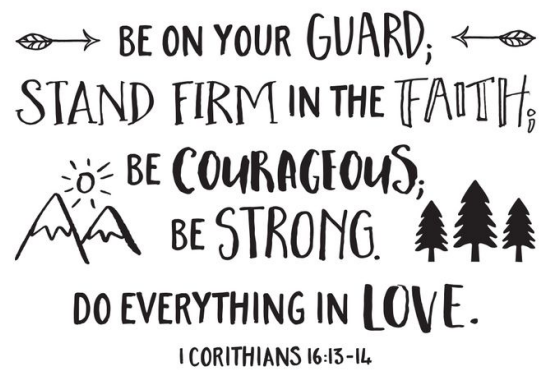 BE ON YOUR GUARD;
STAND FIRM IN THE FAITH;
BE COURAGEOUS;
BE STRONG.
DO EVERYTHING IN LOVE.
1 CORITHIANS 16:13-14